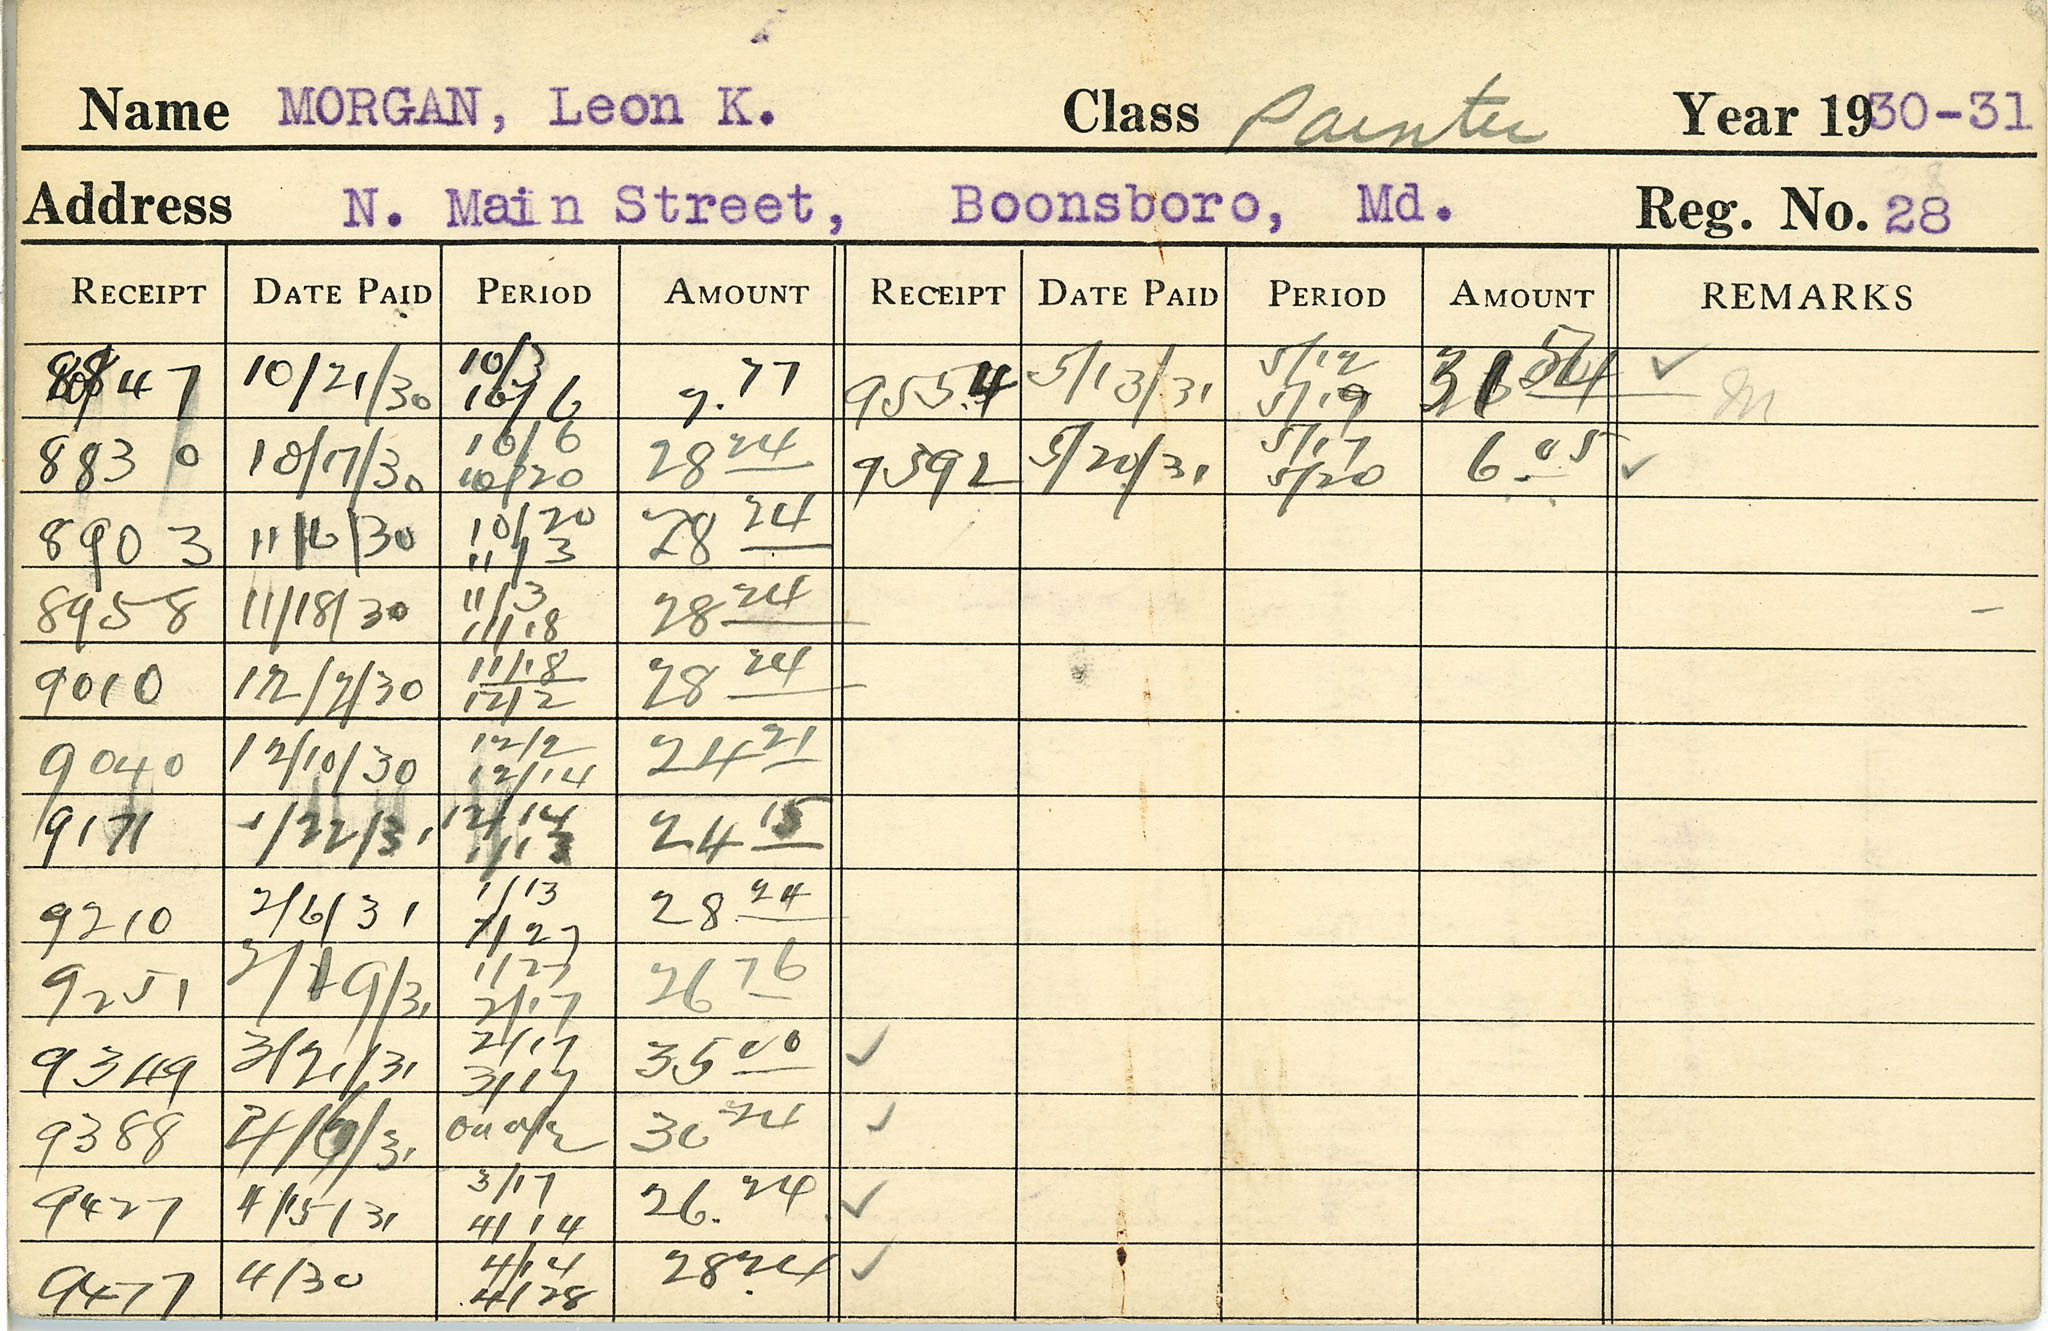 Name MORGAN, Leon K. Class Painter Year 1930-31
Address N. Main Street, Boonsboro, Md. Reg. No. 28
RECEIPT DATE PAID PERIOD AMOUNT RECEIPT DATE PAID PERIOD AMOUNT REMARKS
8847 10/21/30 10/3 10/6 7.77 9554 5/13/31 5/12 ✓
8830 10/7/30 10/6 10/20 28 24 9592 5/20/31 5/17 5/20 6.05 ✓
8903 11/6/30 10/20 11/3 28 24
8958 11/18/30 11/3 11/18 28 24
9010 12/2/30 11/18 12/2 28 24
9040 12/10/30 12/2 12/14 24 21
9171 1/22/31 12/14 1/13 24 15
9210 2/6/31 1/13 1/27 28 24
9251 2/19/31 1/27 2/17 26 76
9349 3/21/31 2/17 3/17 35 00 ✓
9388 4/6/31 30 24 ✓
9427 4/15/31 3/17 4/14 26.24 ✓
9477 4/30 4/14 4/28 28.24 ✓